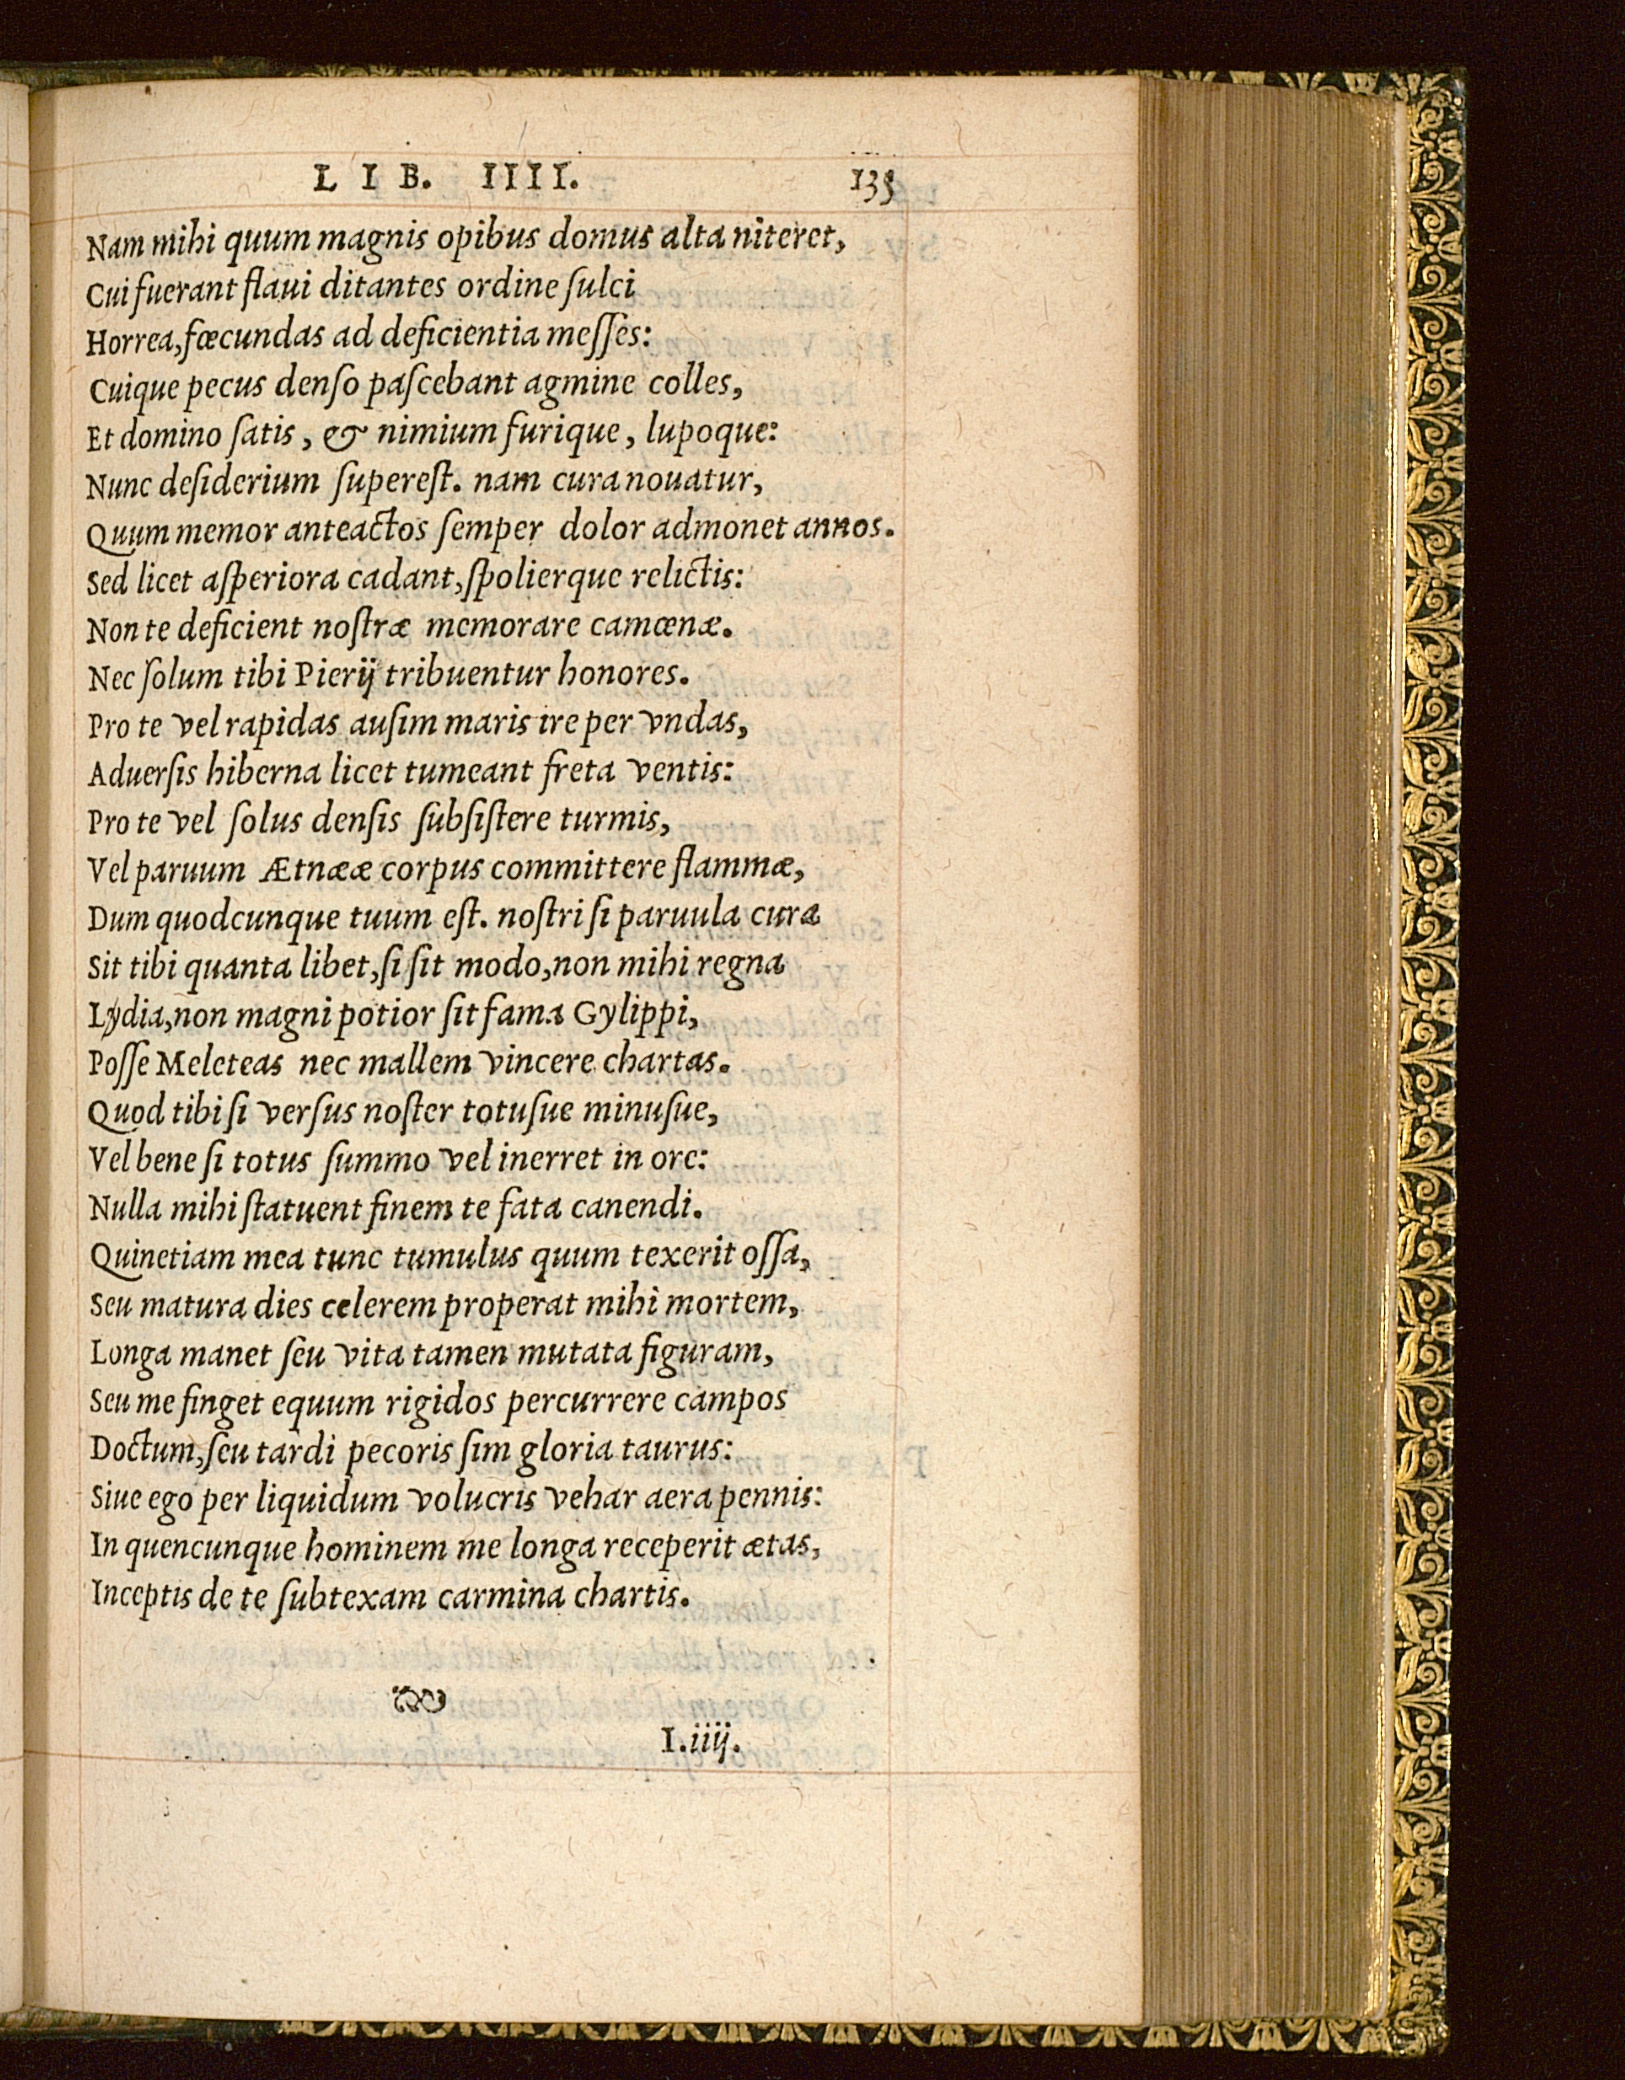 L I B. IIII. 135
Nam mihi quum magnis opibus domus alta niteret,
Cui fuerant flaui ditantes ordine ſulci
Horrea, fœcundas ad deficientia meſſes:
Cuique pecus denſo paſcebant agmine colles,
Et domino ſatis, & nimium furique, lupoque:
Nunc deſiderium ſupereſt. nam cura nouatur,
Quum memor anteactos ſemper dolor admonet annos.
Sed licet aſperiora cadant, ſpolierque relictis:
Non te deficient noſtræ memorare camœnæ.
Nec ſolum tibi Pierij tribuentur honores.
Pro te vel rapidas auſim maris ire per vndas,
Aduerſis hiberna licet tumeant freta ventis:
Pro te vel ſolus denſis ſubſiſtere turmis,
Vel paruum Ætnææ corpus committere flammæ,
Dum quodcunque tuum eſt. noſtri ſi paruula cura
Sit tibi quanta libet, ſi ſit modo, non mihi regna
Lydia, non magni potior ſit fama Gylippi,
Poſſe Meleteas nec mallem vincere chartas.
Quod tibi ſi verſus noſter totuſue minuſue,
Vel bene ſi totus ſummo vel inerret in ore:
Nulla mihi ſtatuent finem te fata canendi.
Quinetiam mea tunc tumulus quum texerit oſſa,
Seu matura dies celerem properat mihi mortem,
Longa manet ſeu vita tamen mutata figuram,
Seu me finget equum rigidos percurrere campos
Doctum, ſeu tardi pecoris ſim gloria taurus:
Siue ego per liquidum volucris vehar aera pennis:
In quencunque hominem me longa receperit ætas,
Inceptis de te ſubtexam carmina chartis.
I.iiij.